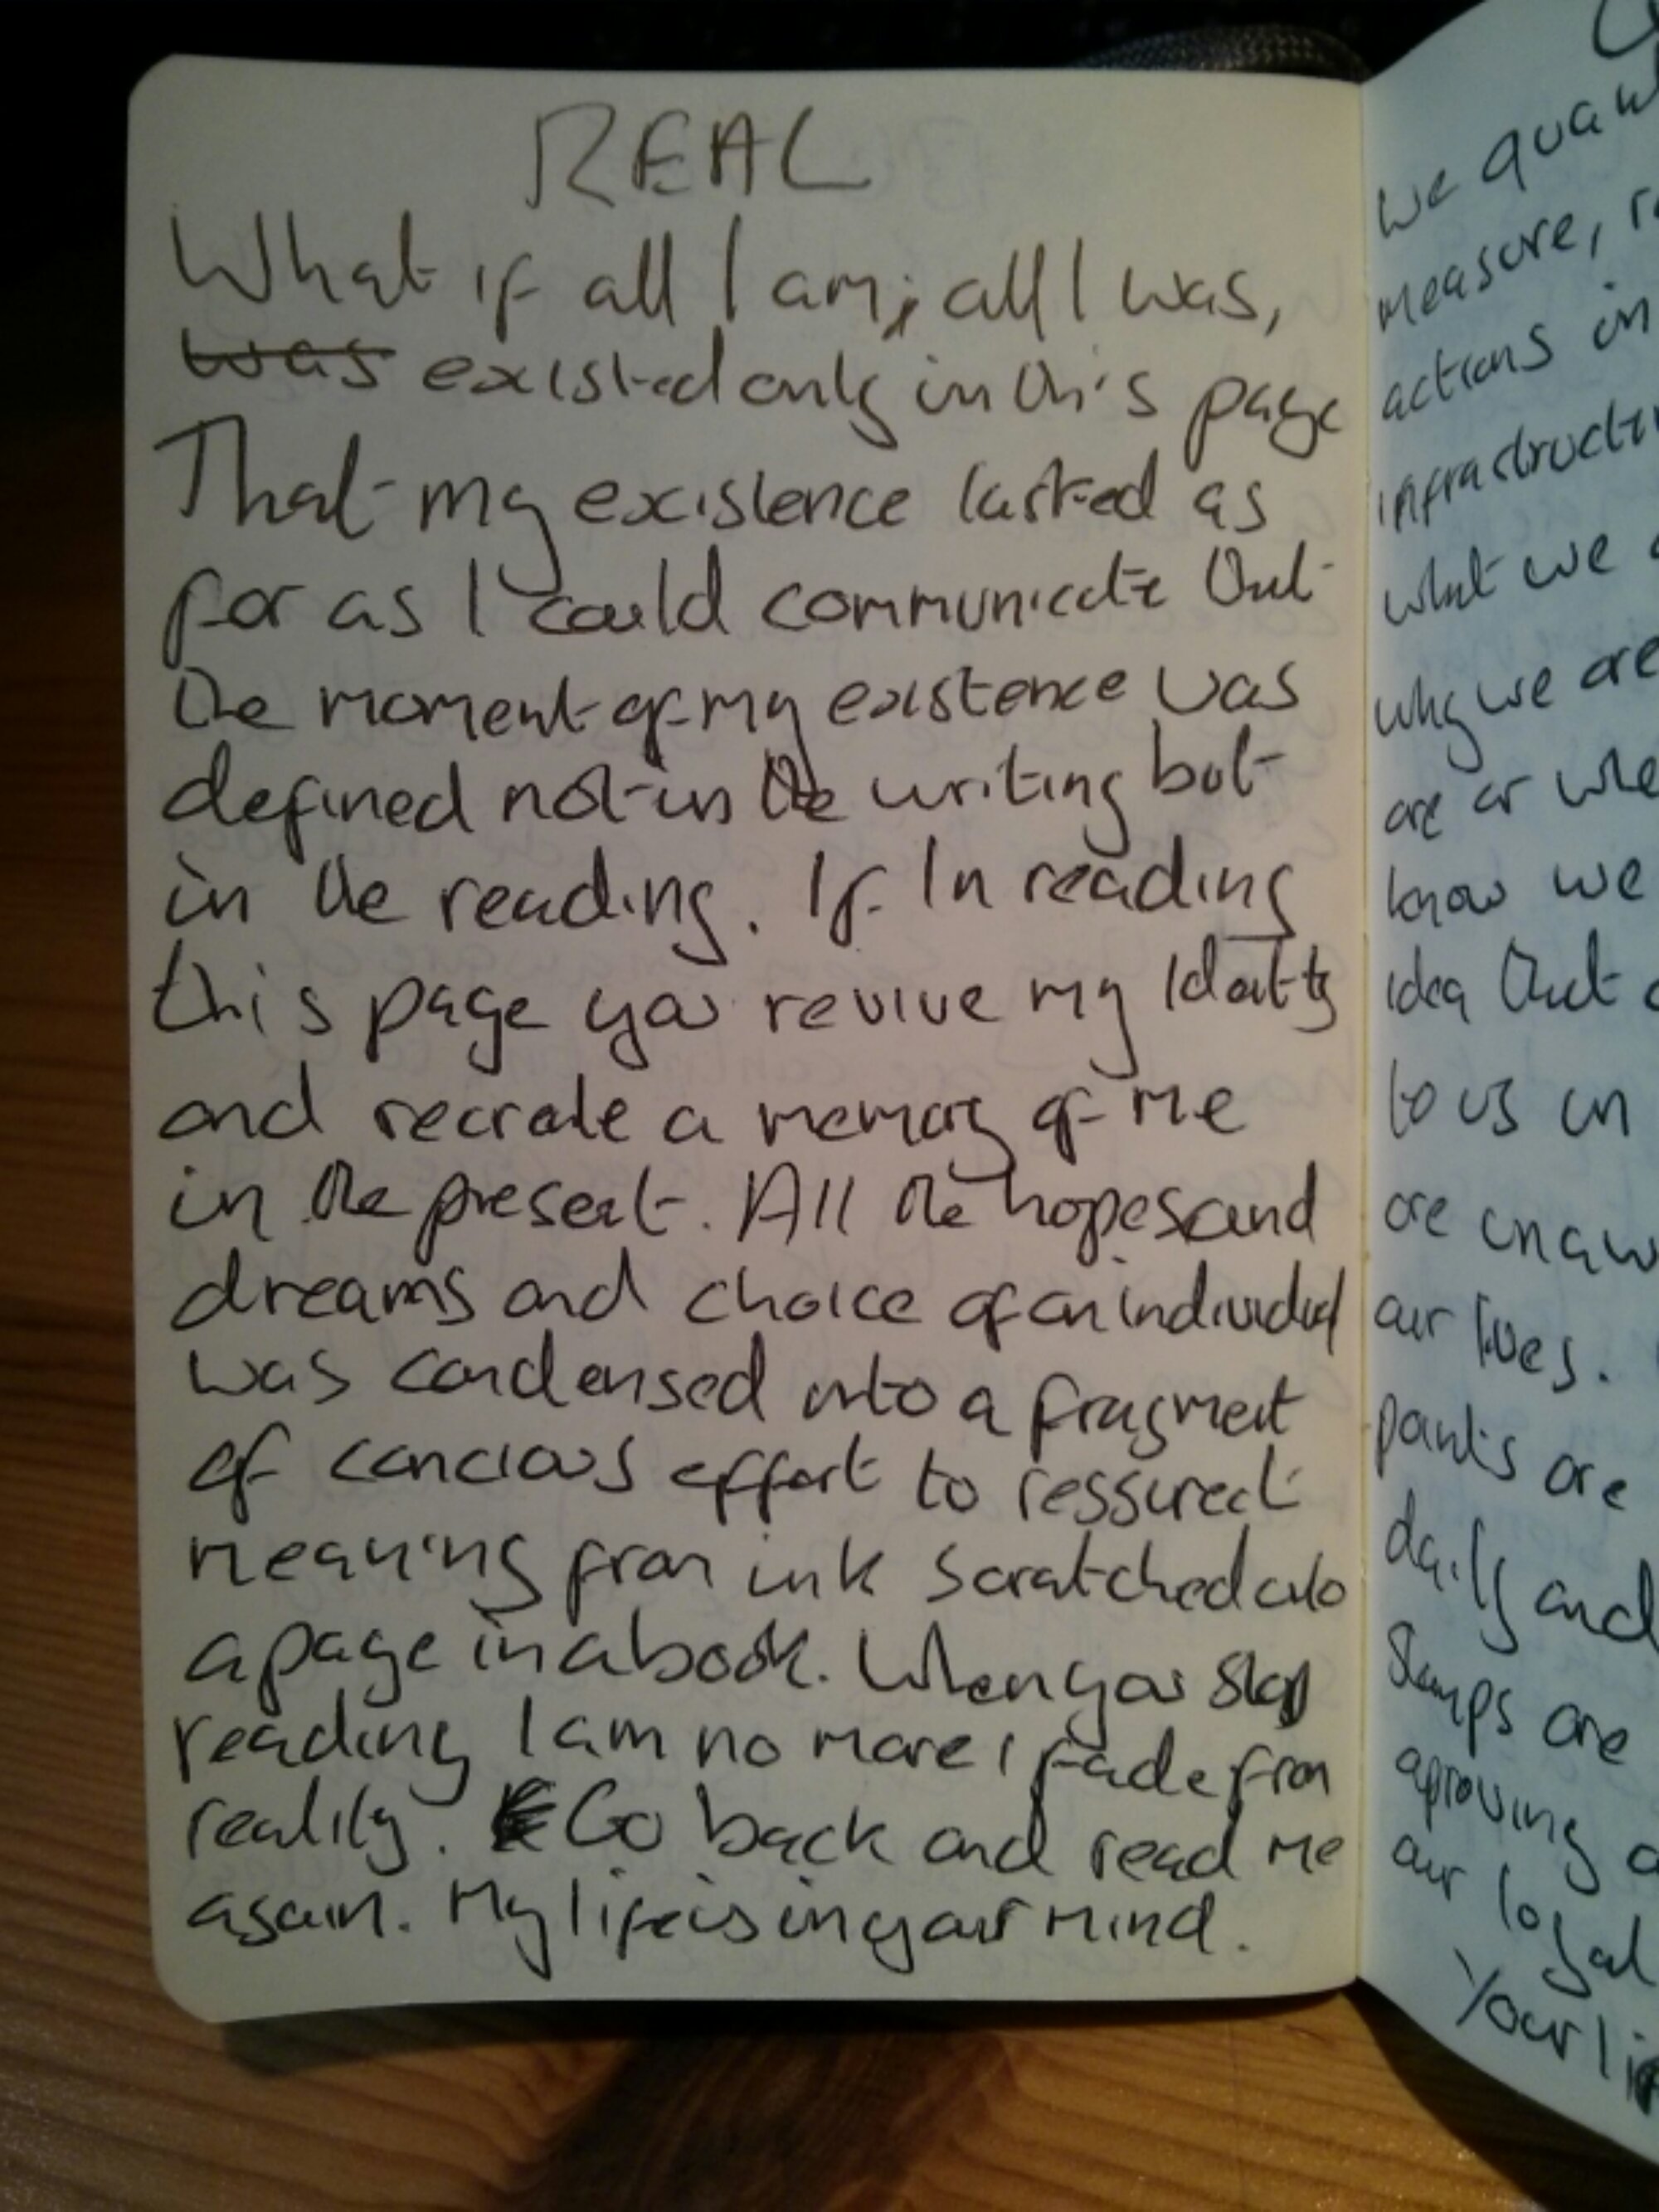 REAL
What if all I am, all I was,
was existed only in this page
That my existence lasted as
far as I could communicate that
the moment of my existence was
defined not in the writing but
in the reading. If In reading
this page you revive my Identity
and recreate a memory of me
in the present. All the hopes and
dreams and choice of an individual
was condensed into a fragment
of concious effort to ressurect
meaning from ink scratched onto
a page in a book. When you stop
reading I am no more, I fade from
reality. Go back and read me
again. My life is in your mind.
We
measure,
actions in
what we
why we are
are or
know we
idea that
to us in
are
our lives.
are
daily and
Stamps are
aproving
our loyal
Your